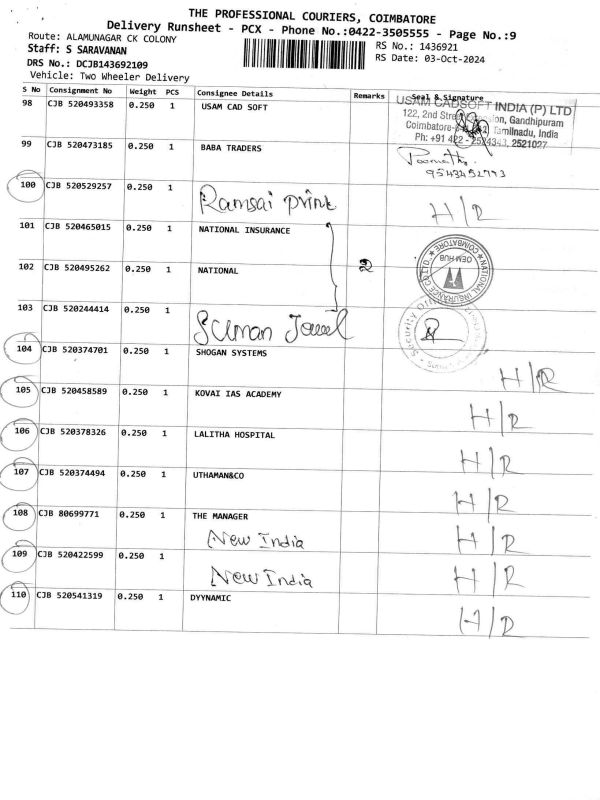 THE PROFESSIONAL COURIERS, COIMBATORE
Delivery Runsheet - PCX - Phone No.:0422-3505555 - Page No.:9
Route: ALAMUNAGAR CK COLONY
RS No.: 1436921
Staff: S SARAVANAN
RS Date: 03-Oct-2024
DRS No.: DCJB143692109
Vehicle: Two Wheeler Delivery
S No Consignment No Weight PCS Consignee Details Remarks Seal & Signature
98 CJB 520493358 0.250 1 USAM CAD SOFT
USAM CADSOFT INDIA (P) LTD
122, 2nd Street, Gandhipuram
Coimbatore- Tamilnadu, India
Ph: +91 422 - 2524343, 2521027
99 CJB 520473185 0.250 1 BABA TRADERS
100 CJB 520529257 0.250 1 Ramsai print H/R
101 CJB 520465015 0.250 1 NATIONAL INSURANCE
102 CJB 520495262 0.250 1 NATIONAL 2
NATIONAL INSURANCE CO LTD. COIMBATORE
OEM HUB
103 CJB 520244414 0.250 1 Suman Jowel
Security
104 CJB 520374701 0.250 1 SHOGAN SYSTEMS H/R
105 CJB 520458589 0.250 1 KOVAI IAS ACADEMY H/R
106 CJB 520378326 0.250 1 LALITHA HOSPITAL H/R
107 CJB 520374494 0.250 1 UTHAMAN&CO H/R
108 CJB 80699771 0.250 1 THE MANAGER H/R
New India
109 CJB 520422599 0.250 1 H/R
New India
110 CJB 520541319 0.250 1 DYYNAMIC H/R